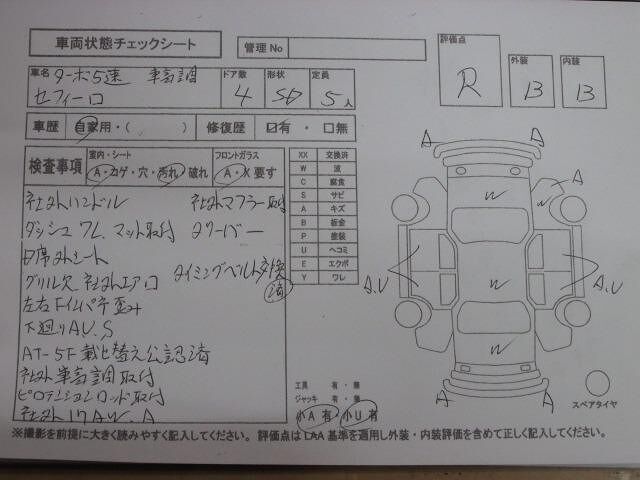 車両状態チェックシート
管理No
評価点 R
外装 B
内装 B
車名 ターボ5速 車高調
セフィーロ
ドア数 4
形状 SD
定員 5人
車歴 自家用・( )
修復歴 ☑有・□無
検査事項
室内・シート
A・コゲ・穴・汚れ・破れ
フロントガラス
A・X要す
XX 交換済
W 波
C 腐食
S サビ
A キズ
B 板金
P 塗装
U ヘコミ
E エクボ
Y ワレ
社外ハンドル 社外マフラー取付
ダッシュワレ、マット取付 タワーバー
D席外シート
グリル欠 社外エアロ タイミングベルト交換済
左右Fインパネ歪み
下廻りAU、S
AT-5F載せ替え公認済
社外車高調取付
ピロテンションロッド取付
社外17AW、A
工具 有・無
ジャッキ 有・無
小A有 小U有
A
A
A
W
W
W
W
A.U
A.U
A
A
スペアタイヤ
※撮影を前提に大きく読みやすく記入してください。評価点はLAA基準を適用し外装・内装評価を含めて正しく記入してください。